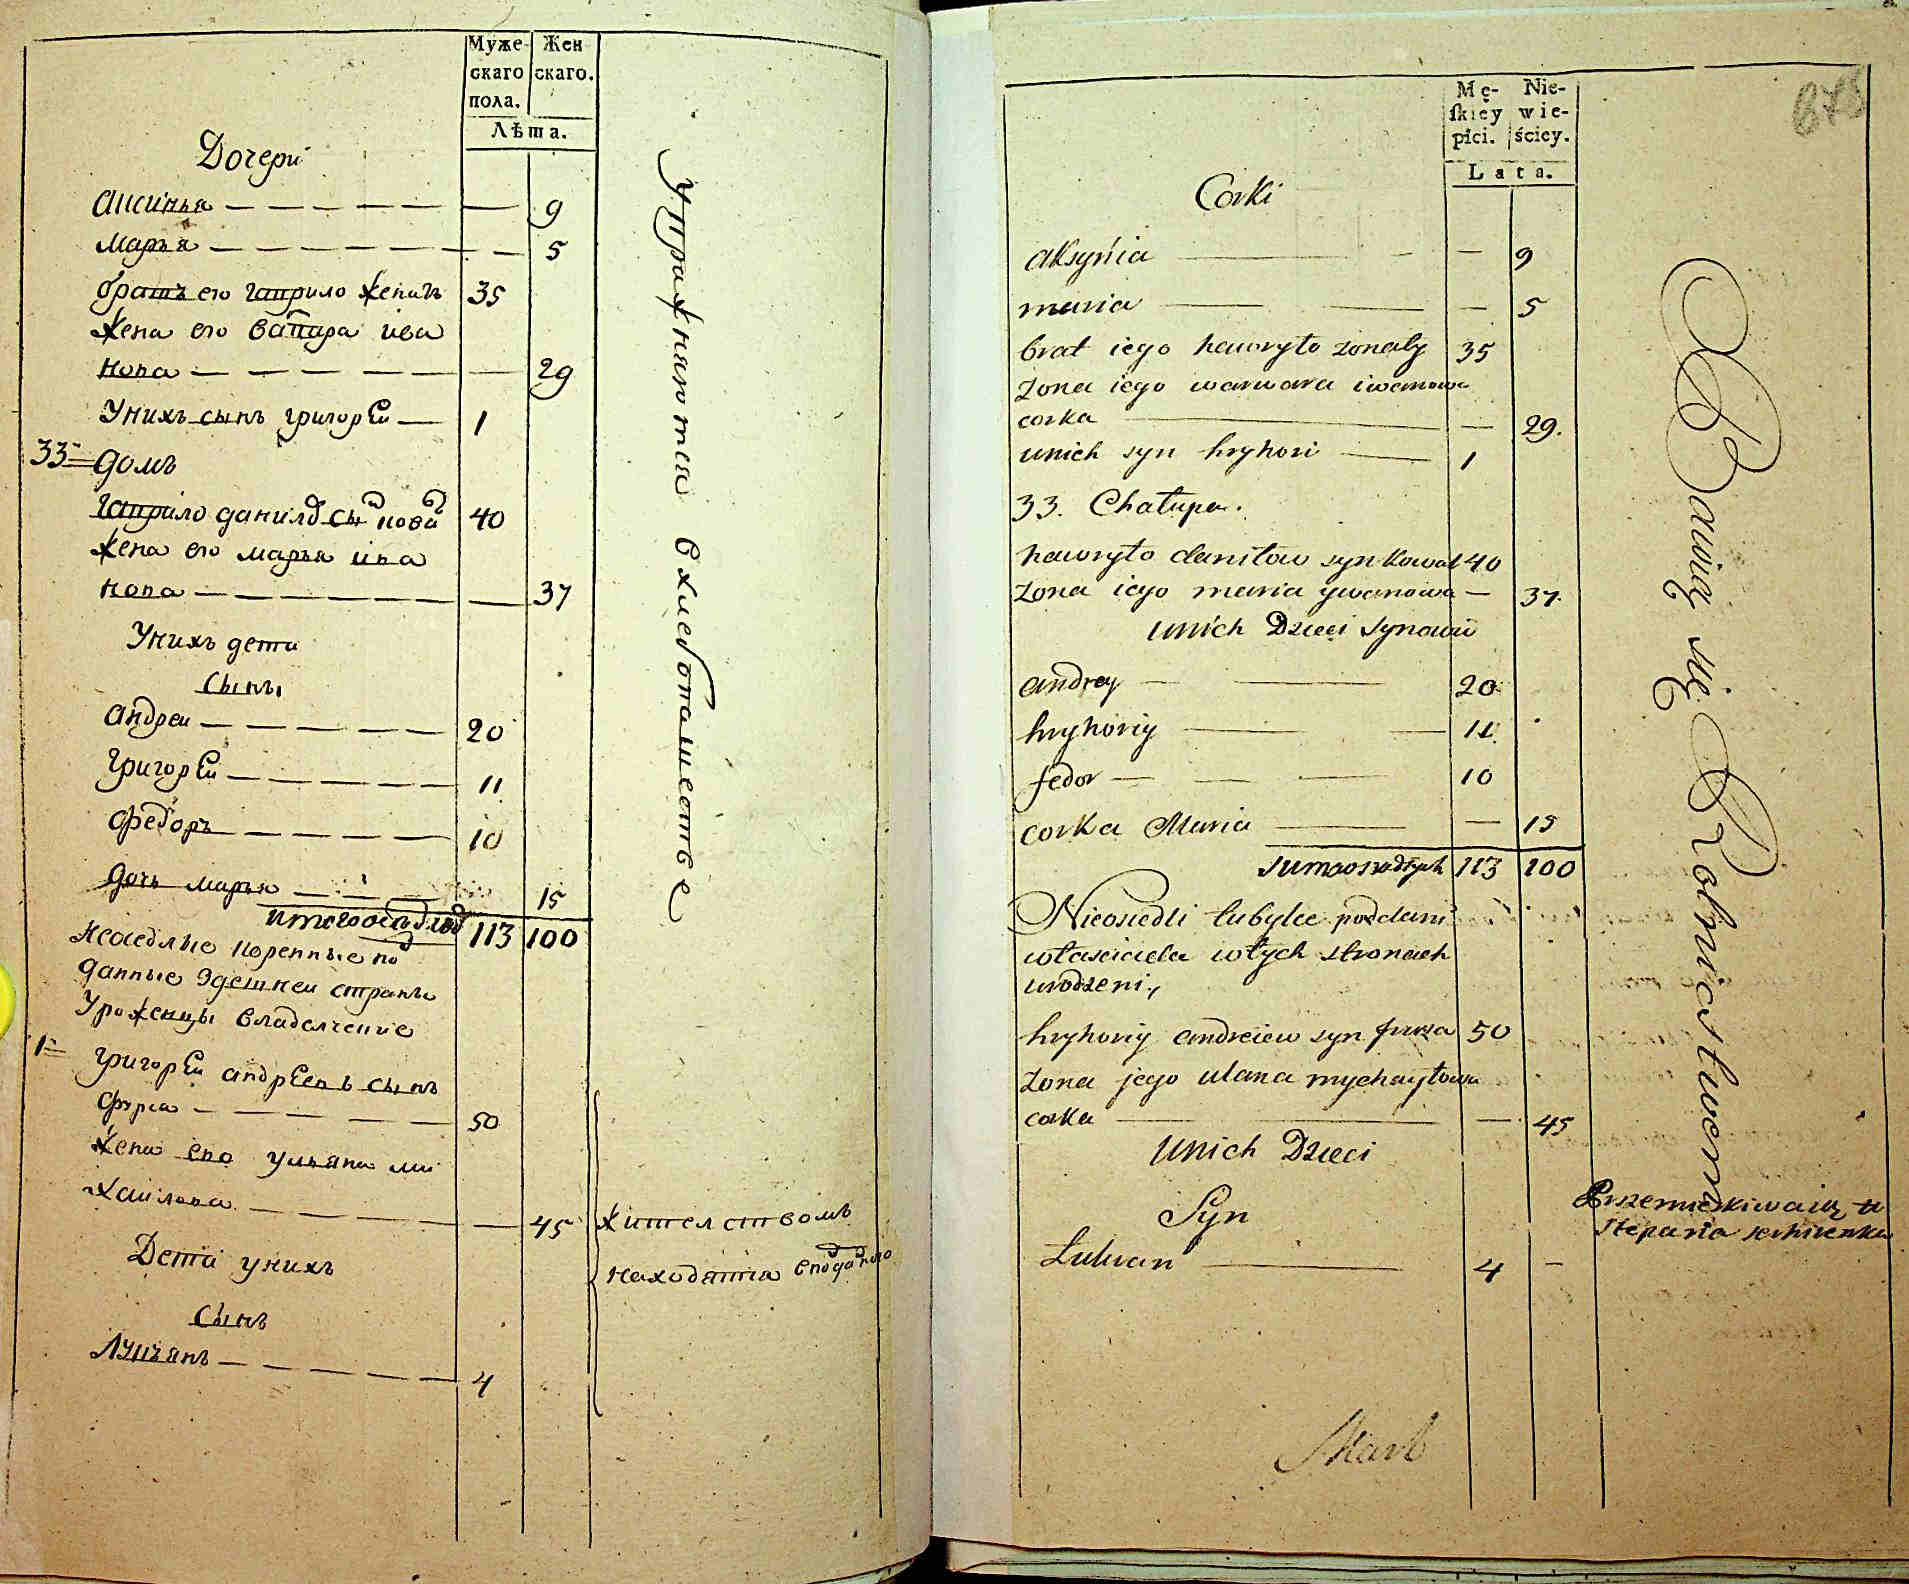 Муже-
скаго
пола.
Жен
скаго.
Лѣта.
Дочери
Аксинья 9
марья 5
братъ его гаврило женатъ 35
жена его варвара ива
нова 29
Унихъ сынъ григорей 1
33 домъ
гаврило данилов сынъ 40
жена его марья ива
нова 37
Унихъ дети
Сыны
андреи 20
григореи 11
федоръ 10
дочь марья 15
113 100
неоседлые коренные под
данные здешнеи страны
Уроженцы владелческие
1
григореи андреевъ сынъ
фурса 50
жена его ульяна ми
хаилова 45
Дети унихъ
Сынъ
Лукьянъ 4
Упражняютца в хлебопашестве
жителствомъ
находятца
Mę-
skiey
płci.
Nie-
wie-
ściey.
Lata.
Corki
aksyńia 9
maria 5
brat iego hawryło żonaty 35
żona iego warwara iwanowa
corka 29.
unich syn hryhori 1
33. Chałupa.
hawryło daniłow syn kowal 40
żona iego maria ywanowa 37.
unich Dzieci Synowie
andrey 20
hryhoriy 11
fedor 10
corka Maria 15
113 100
Nieosiedli tubylce poddani
własciciela wtych stronach
urodzeni,
hryhoriy andreiew syn fursa 50
żona jego ulana mychayłowa
corka 45
unich Dzieci
Syn
Łukian 4
Skarb
Bawią się Rolnictwem
Przemieszkiwaią u
Stepana